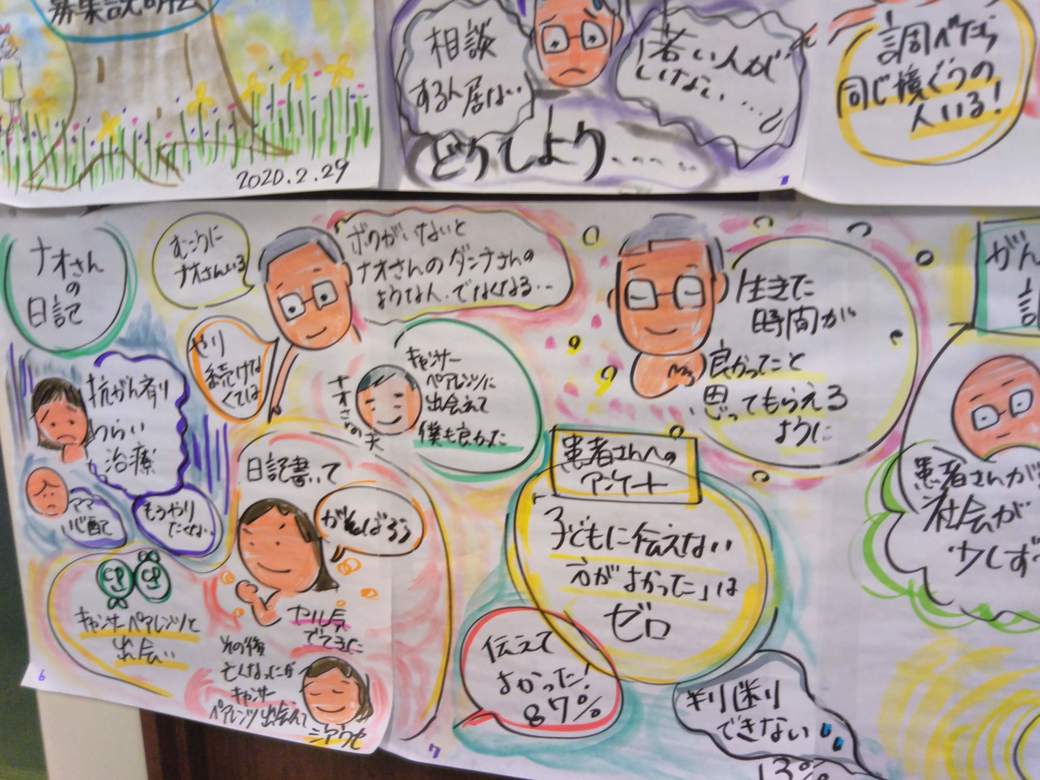 募集説明会
2020.2.29
相談
する人居ない
若い人が
いない…
どうしよう……
調べたら
同じ境ぐうの
人いる!
ナオさん
の
日記
抗がん剤
つらい
治療
ママ
心配
もうやり
たくない
キャンサーペアレンツと
出会い
6
むこうに
ナオさんいる
ボクがいないと
ナオさんのダンナさんの
ような人、でなくなる…
やり
続けな
くては
ナオさんの夫
キャンサー
ペアレンツに
出会えて
僕も良かった
日記書いて
がんばろう
やる気
でてきた
その後
亡くなったが
キャンサー
ペアレンツ出会えて
シアワセ
7
生きた
時間が
良かったこと
思ってもらえる
ように
患者さんへの
アンケート
「子どもに伝えない
方がよかった」は
ゼロ
伝えて
よかった!
87%
判断
できない
13%
がん
患者さんが
社会が
少しず